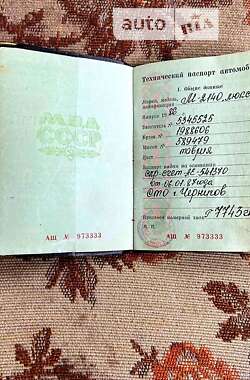 auto RIA
МВД
СССР
АЩ № 973333
Технический паспорт автомоб
I. Общие данные
Марка, модель,
модификация М-2140 люкс
Выпуск 19
Двигатель № 5345525
Кузов № 1988606
Шасси № 589479
Цвет
Паспорт выдан на основании
64-541370
от 06.01.87 года
г. Чернигов
Присвоен номерной знак Г 7743
М. П.
АЩ № 973333